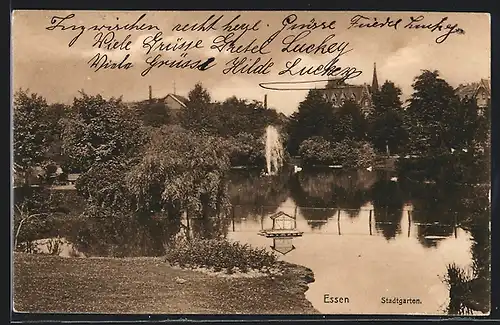 Inzwischen recht hzl. Grüsse Friedel Luckey
Viele Grüsse Gretel Luckey
Viele Grüsse Hilde Luckey
Essen Stadtgarten.